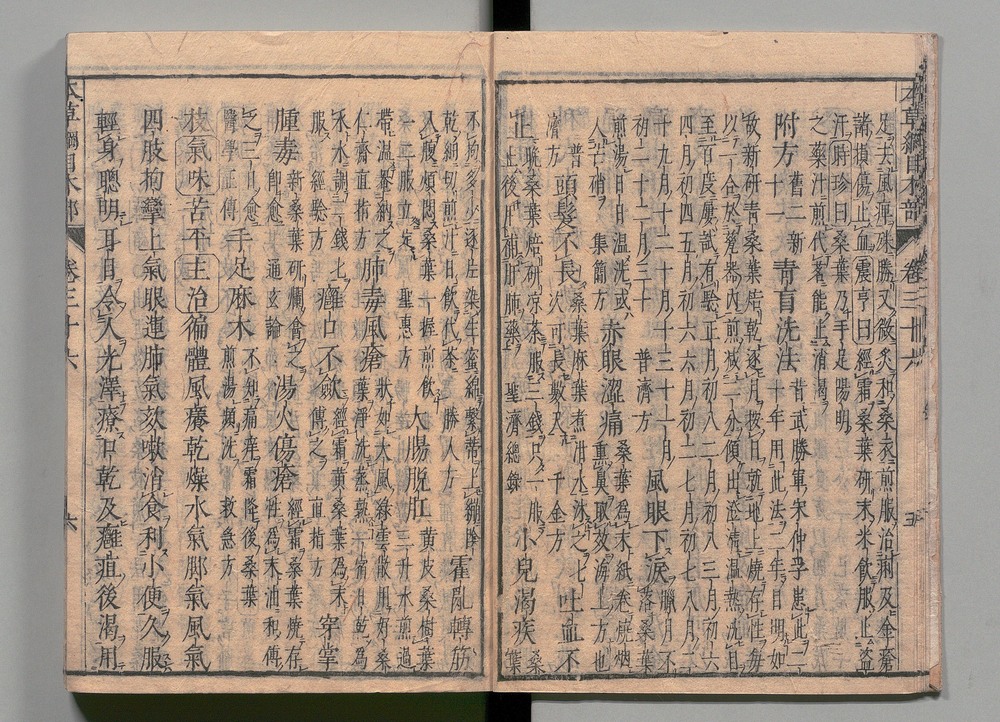 本草綱目木部 卷三十六 五
足去風痺殊勝又微炙和桑衣煎服治痢及金瘡
諸損傷止血震亨曰經霜桑葉研末米飲服止盜
汗時珍曰桑葉乃手足陽明
之藥汁煎代茗能止消渴
附方舊二新十一 青盲洗法 昔武勝軍宋仲孚患此二
十年用此法二年目明如
故新研青桑葉焙乾逐月按日就地上燒存性每
以一合於瓷器內煎減二分傾出澄清溫熱洗目
至百度屢試有驗正月初八二月初八三月初六
四月初四五月初六六月初二七月初七八月二
十九月十二十月十三十一月
初二十二月三十 普濟方 風眼下淚 臘月不
落桑葉
煎湯日日溫洗或
入芒硝 集簡方 赤眼澀痛 桑葉為末紙卷燒烟
熏鼻取效海上方也
普濟方 頭髮不長 桑葉麻葉煮泔水沐之七
次可長數尺 千金方 吐血不
止 晚桑葉焙研凉茶服三錢只一服
止後用補肝肺藥 聖濟總錄 小兒渴疾 桑
葉
不拘多少逐片染生蜜綿繫蒂上繃陰
乾細切煎汁日飲代茶 勝人方 霍亂轉筋
入腹煩悶桑葉一握煎飲
一二服立定 聖惠方 大腸脫肛 黃皮桑樹葉
三升水煎過
帶溫罨納之
仁齋直指方 肺毒風瘡 狀如大風綠雲散用好桑
葉淨洗蒸熟一宿日乾為
末水調二錢
服 經驗方 癰口不斂 經霜黃桑葉為末
傅之 直指方 穿掌
腫毒 新桑葉研爛盦之
即愈 通玄論 湯火傷瘡 經霜桑葉燒存
性為末油和傅
之三日愈
醫學正傳 手足麻木 不知痛痒霜降後桑葉
煎湯頻洗 救急方
枝氣味苦平主治徧體風癢乾燥水氣腳氣風氣
四肢拘攣上氣眼運肺氣欬嗽消食利小便久服
輕身聰明耳目令人光澤療口乾及癰疽後渴用
本草綱目木部 卷三十六 六